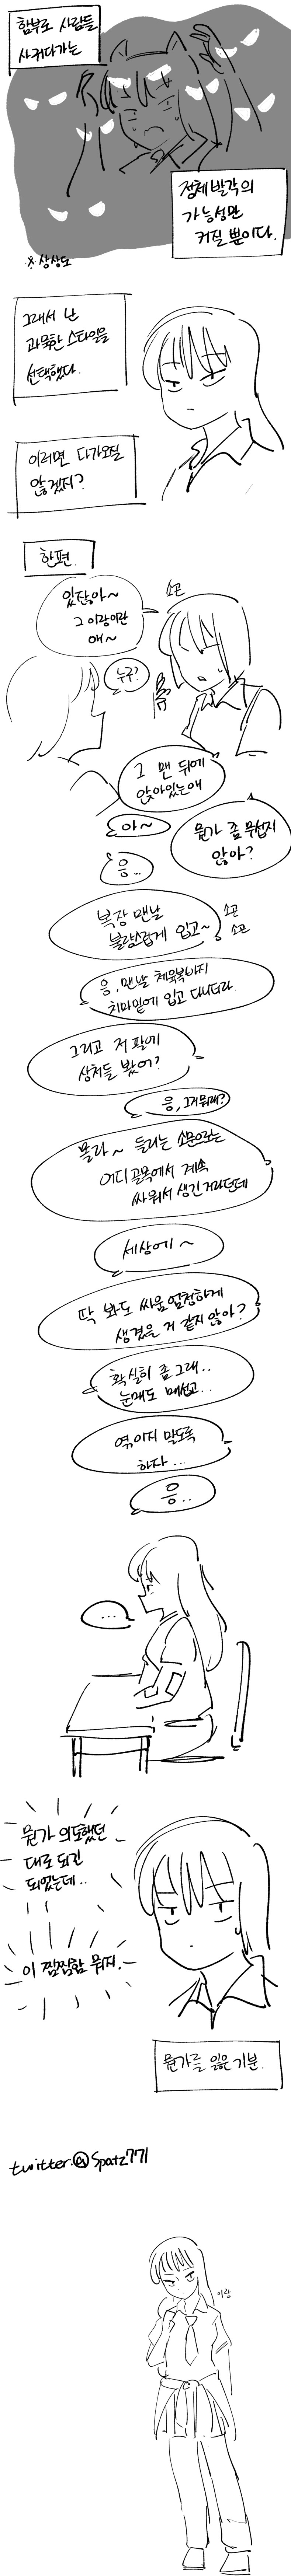 함부로 사람들
사귀다가는
정체 발각의
가능성만
커질 뿐이다.
※상상도
그래서 난
과묵한 스타일을
선택했다.
이러면 다가오질
않겠지?
한편.
있잖아~
그 이랑이란
애~
소곤
누구?
그 맨 뒤에
앉아있는애
아~
뭔가 좀 무섭지
않아?
응..
복장 맨날
불량스럽게 입고~
소곤
소곤
응, 맨날 체육복바지
치마밑에 입고 다니더라.
그리고 저 팔에
상처들 봤어?
응, 그거뭐래?
몰라~ 들리는 소문으로는
어디 골목에서 계속
싸워서 생긴 거라던데
세상에~
딱 봐도 싸움 엄청하게
생겼을 거 같지 않아?
확실히 좀 그래..
눈매도 매섭고...
엮이지 말도록
하자...
응..
...
뭔가 의도했던
대로 되긴
되었는데..
이 찜찜함 뭐지.
뭔가를 잃은 기분.
twitter.@Spatz771
이랑